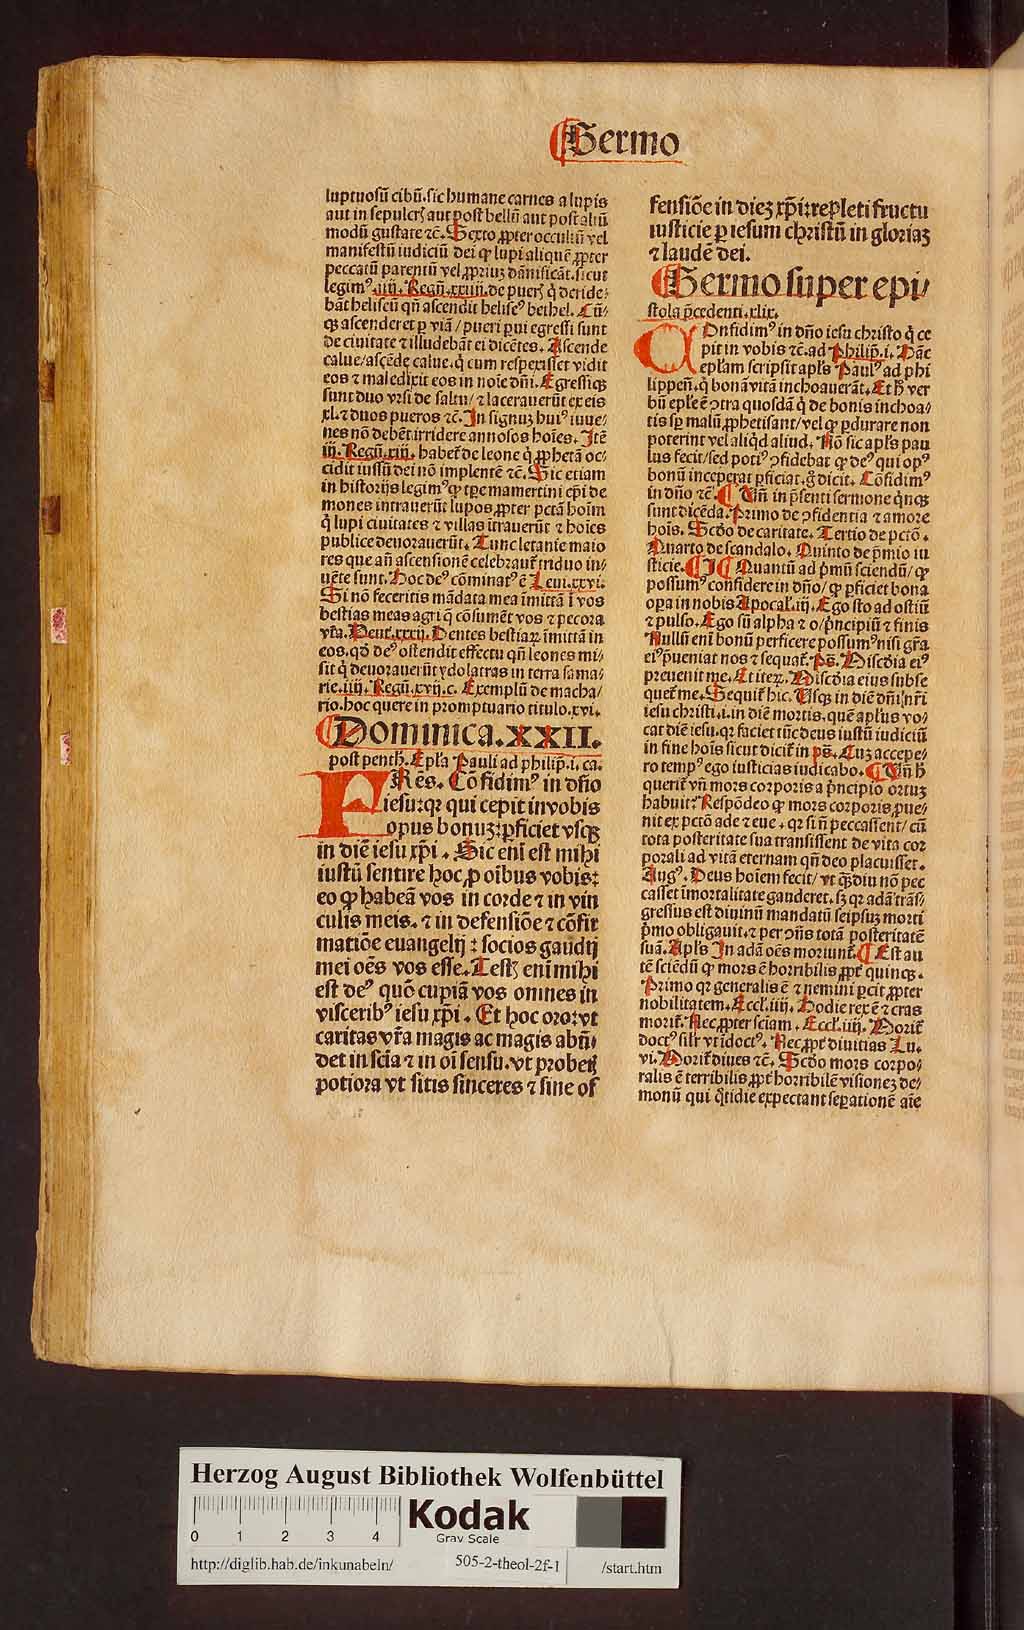 Sermo
luptuosū cibū. sic humane carnes a lupis
aut in sepulcrꝫ aut post bellū aut post aliū
modū gustate ⁊c̄. Sexto ꝓpter occultū vel
manifestū iudiciū dei ꝙ lupi aliquē ꝓpter
peccatū parentū vel ꝓpriuꝫ dānificāt. sicut
legimꝰ .iiij. Regū. xxiij. de puerꝫ q̇ deride⸗
bāt heliseū qn̄ ascendit helisꝰ bethel. Cū⸗
qꝫ ascenderet ꝑ viā / pueri ꝑui egressi sunt
de ciuitate ⁊ illudebāt ei dicētes. Ascende
calue / ascēde calue. q̇ cum respexisset vidit
eos ⁊ maledixit eos in noīe dn̄i. Egressiqꝫ
sunt duo vrsi de saltu / ⁊ lacerauerūt ex eis
xl. ⁊ duos pueros ⁊c̄. In signuꝫ huiꝰ iuue⸗
nes nō debēt irridere annosos hoīes. Itē
iij. Regū. xiij. habet̄ de leone q̇ ꝓphetā oc⸗
cidit iussū dei nō implentē ⁊c̄. Sic etiam
in historijs legimꝰ ꝙ tꝑe mamertini ep̄i de
mones intrauerūt lupos ꝓpter pctā hoīm
q̇ lupi ciuitates ⁊ villas ītrauerūt ⁊ hoīes
publice deuorauerūt. Tunc letanie maio
res que an̄ ascensionē celebrant̄ triduo in⸗
uēte sunt. Hoc deꝰ cōminatꝰ ē Leui. xxvi.
Si nō feceritis mādata mea īmittā ī vos
bestias meas agri q̄ cōsumēt vos ⁊ pecora
vr̄a. Deut̄. xxxij. Dentes bestiaꝝ īmittā in
eos. qd̄ deꝰ ostendit effectu qn̄ leones mi⸗
sit q̇ deuorauerūt ydolatras in terra sama⸗
rie. iiij. Regū. xvij. c. Exemplū de macha⸗
rio. hoc quere in promptuario titulo. xvi.
Dominica. XXII.
post penth̄. Ep̄la Pauli ad philip̄. i. ca.
FRēs. Cōfidimꝰ in dn̄o
iesu: qꝛ qui cepit in vobis
opus bonuꝫ: ꝑficiet vsqꝫ
in diē iesu xp̄i. Sic eni est mihi
iustū sentire hoc ꝓ oībus vobis:
eo ꝙ habeā vos in corde ⁊ in vin
culis meis. ⁊ in defensiōe ⁊ cōfir
matiōe euangelij: socios gaudij
mei oēs vos esse. Testꝫ eni mihi
est deꝰ quō cupiā vos omnes in
visceribꝰ iesu xp̄i. Et hoc oro: vt
caritas vr̄a magis ac magis abū⸗
det in scīa ⁊ in oī sensu. vt probetꝫ
potiora vt sitis sinceres ⁊ sine of
fensiōe in dieꝫ xp̄i: repleti fructu
iusticie ꝑ iesum christū in gloriaꝫ
⁊ laudē dei.
Sermo super epi⸗
stola p̄cedenti. xlix.
COnfidimꝰ in dn̄o iesu christo q̇ ce
pit in vobis ⁊c̄. ad Philip̄. i. Hāc
ep̄lam scripsit apl̄s Paulꝰ ad phi
lippeñ. q̇ bonā vitā inchoauerāt. Et h̄ ver
bū ep̄le ē ꝯtra quosdā q̇ de bonis inchoa⸗
tis sꝑ malū ꝓphetisant / vel ꝙ ꝑdurare non
poterint vel aliqd̄ aliud. Nō sic apl̄s pau
lus fecit / sed potiꝰ ꝯfidebat ꝙ deꝰ qui opꝰ
bonū inceperat ꝑficiat. g̊ dicit. Cōfidimꝰ
in dn̄o ⁊c̄. Un̄ in p̄senti sermone q̇nqꝫ
sunt dicēda. Primo de ꝯfidentia ⁊ amore
hoīs. Scd̄o de caritate. Tertio de pctō.
Quarto de scandalo. Quinto de p̄mio iu
sticie. I Quantū ad ṗmū sciendū / ꝙ
possumꝰ confidere in dn̄o / ꝙ ꝑficiet bona
opa in nobis Apocal̄. iij. Ego sto ad ostiū
⁊ pulso. Ego sū alpha ⁊ o / ṗncipiū ⁊ finis
Nullū eni bonū perficere possumꝰ nisi gr̄a
eiꝰ p̄ueniat nos ⁊ sequat̄. Ps̄. Misc̄dia eiꝰ
preuenit me. Et iteꝝ. Misc̄dia eius subse
quet̄ me. Sequit̄ hic. Usqꝫ in diē dn̄i nr̄i
iesu christi .i. in diē mortis. quē apl̄us vo⸗
cat diē iesu. qꝛ faciet tūc deus iustū iudiciū
in fine hoīs sicut dicit̄ in ps̄. Cuꝫ accepe⸗
ro tempꝰ ego iusticias iudicabo. Un̄ h̄
querit̄ vn̄ mors corporis a ṗncipio ortuꝫ
habuit? Respōdeo ꝙ mors corporis ꝓue⸗
nit ex pctō ade ⁊ eue. qꝛ si n̄ peccassent / cū
tota posteritate sua transissent de vita cor
porali ad vitā eternam qn̄ deo placuisset.
Augꝰ. Deus hoīem fecit / vt qꝫdiu nō pec
casset īmortalitate gauderet. sꝫ qꝛ adā trās⸗
gressus est diuinū mandatū seipsuꝫ morti
ṗmo obligauit. ⁊ per ꝯn̄s totā posteritatē
suā. Apl̄s In adā oēs moriunt̄. Est au
tē sciēdū ꝙ mors ē horribilis ꝓpt̄ quinqꝫ.
Primo qꝛ generalis ē ⁊ nemini ꝑcit ꝓpter
nobilitatem. Eccl̄. iiij. Hodie rex ē ⁊ cras
morit̄. Nec ꝓpter sciam. Eccl̄. iiij. Morit̄
doctꝰ sil̄r vt īdoctꝰ. Nec ꝓpt̄ diuitias Lu.
vi. Morit̄ diues ⁊c̄. Scd̄o mors corpo⸗
ralis ē terribilis ꝓpt̄ horribilē visioneꝫ de⸗
monū qui q̇tidie expectant seꝑationē aīe
Herzog August Bibliothek Wolfenbüttel
0 1 2 3 4
Kodak
Gray Scale
http://diglib.hab.de/inkunabeln/ 505-2-theol-2f-1 /start.htm